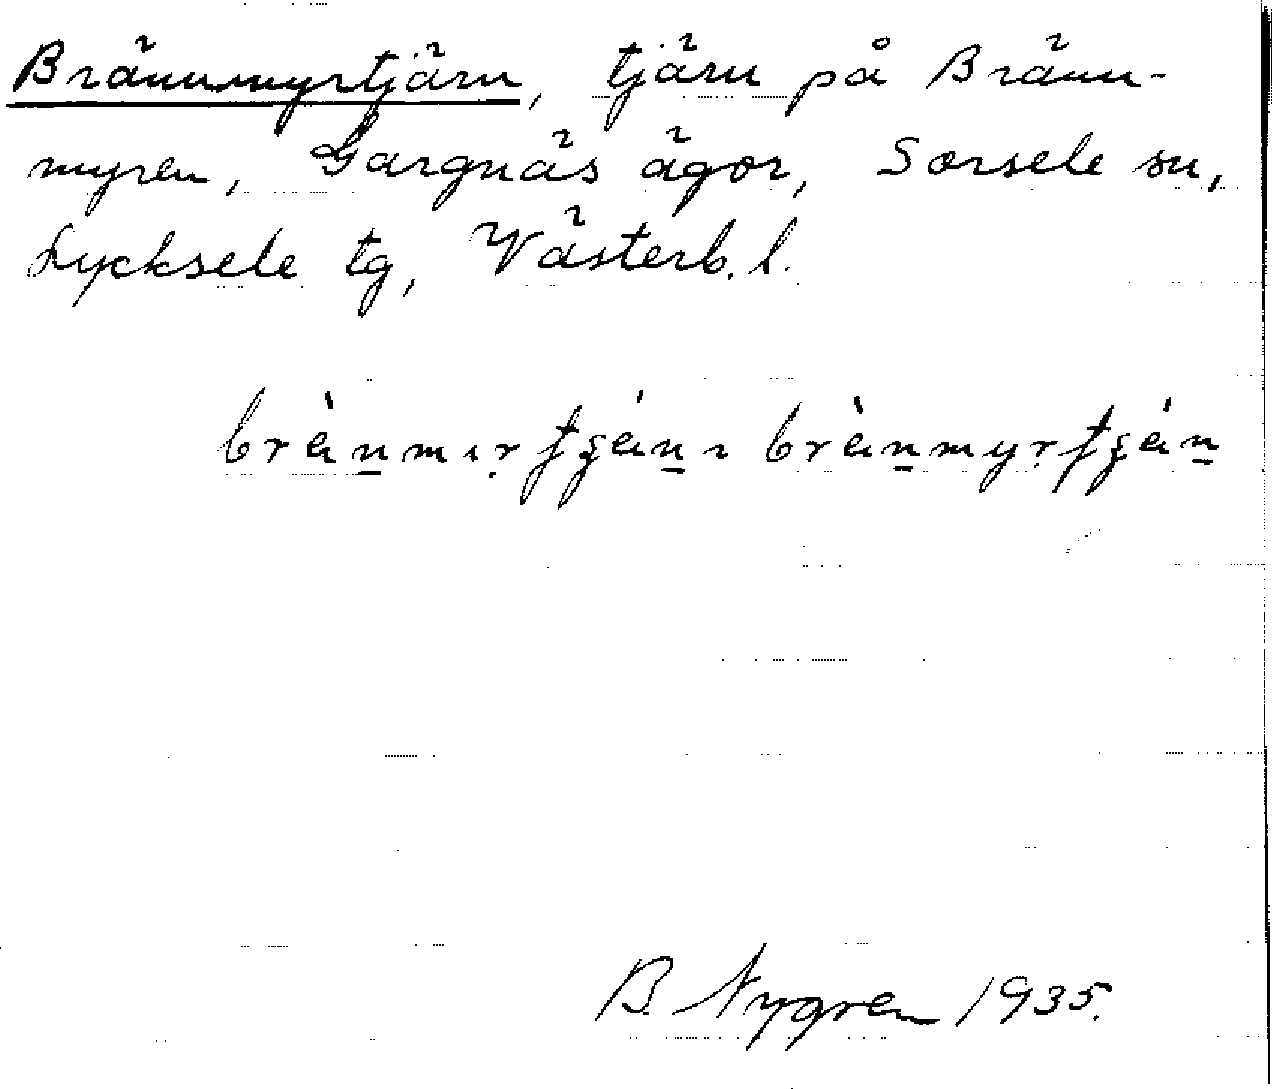 Brännmyrtjärn, tjärn på Bränn-
myren, Gargnäs ägor, Sorsele sn,
Lycksele tg, Västerb. l.
B. Nygren 1935.